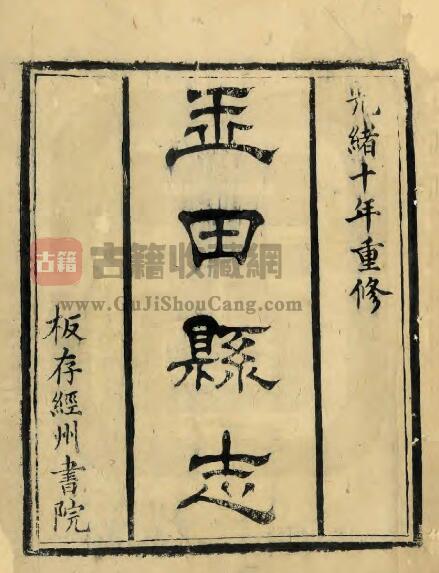 光緒十年重修
玉田縣志
板存經州書院
古籍
古籍收藏網
www.GuJiShouCang.com